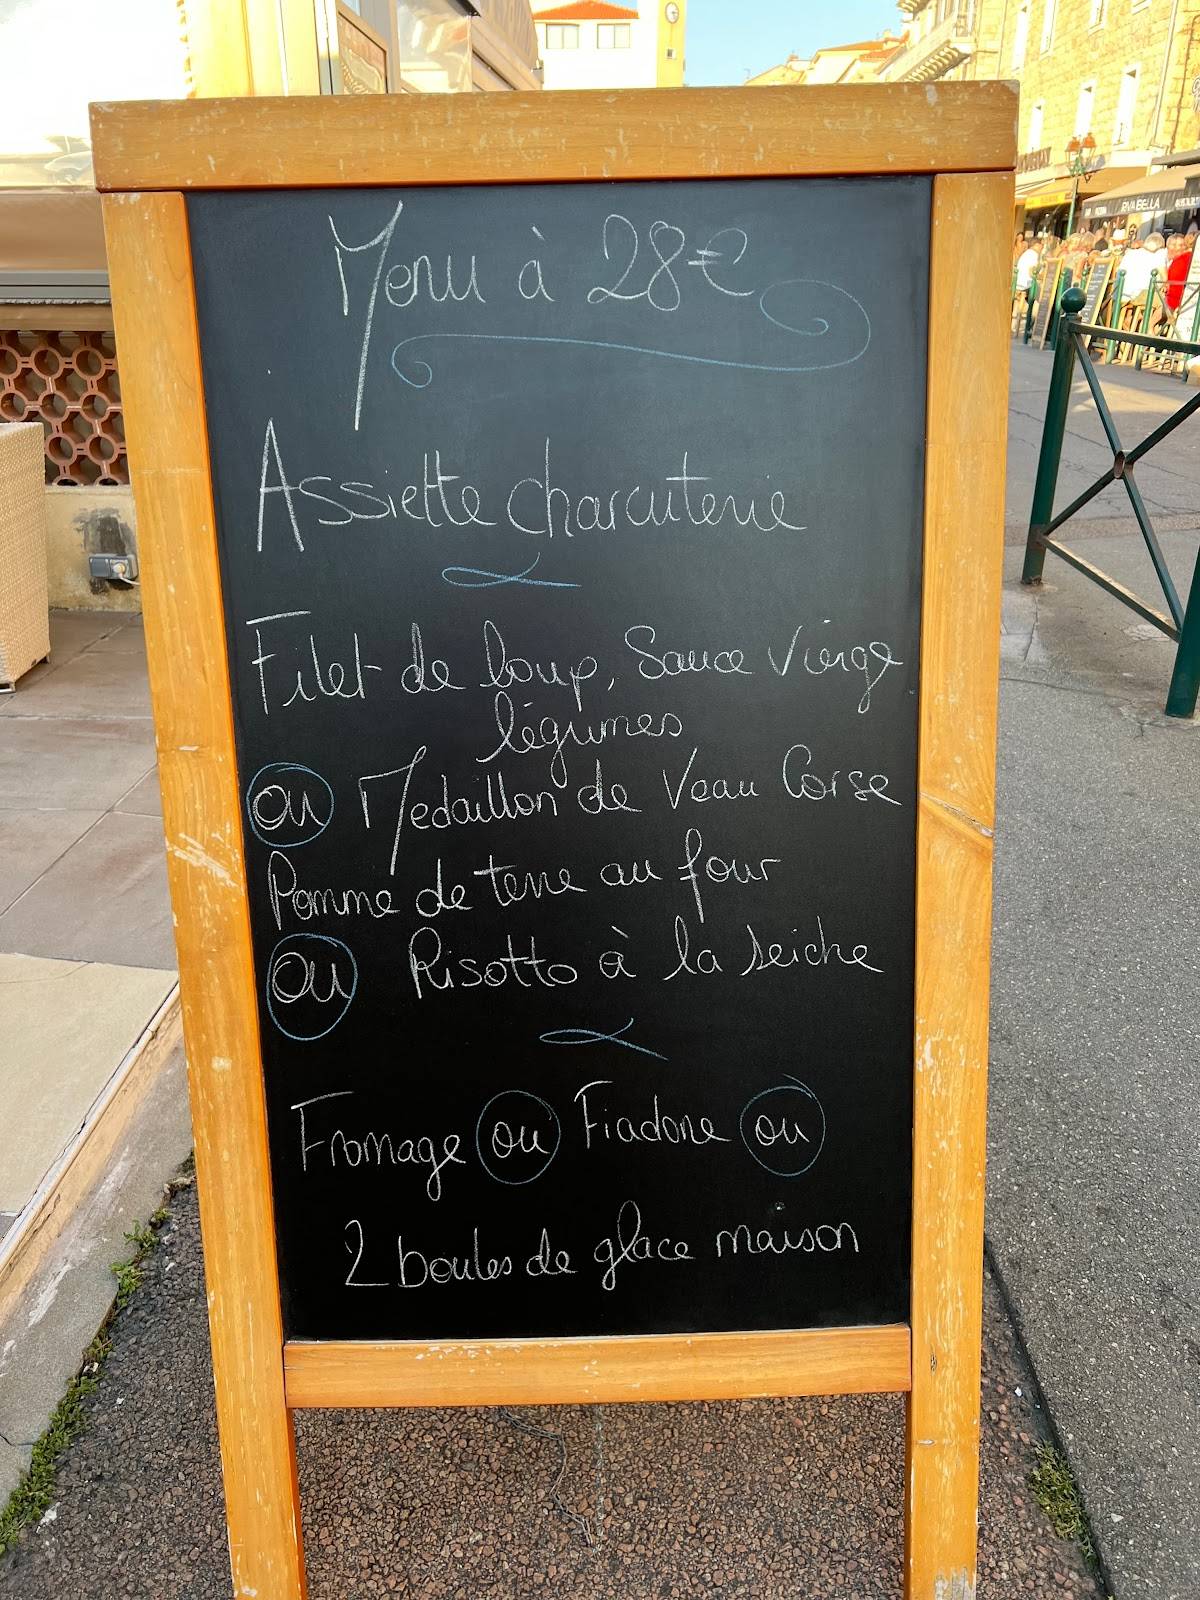 Menu à 28€
Assiette charcuterie
Filet de loup, Sauce Vierge
légumes
ou Medaillon de Veau Corse
Pomme de terre au four
ou Risotto à la seiche
Fromage ou Fiadone ou
2 boules de glace maison
RIVABELLA